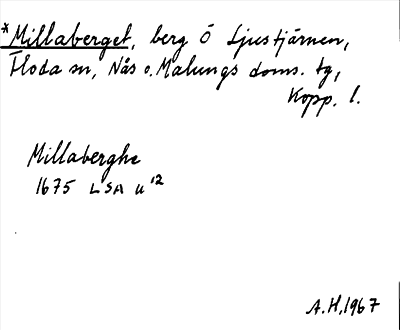 *Millaberget, berg Ö Ljustjärnen,
Floda sn, Nås o. Malungs doms. tg,
Kopp. l.
Millaberghe
1675 LSA u¹²
A.H. 1967